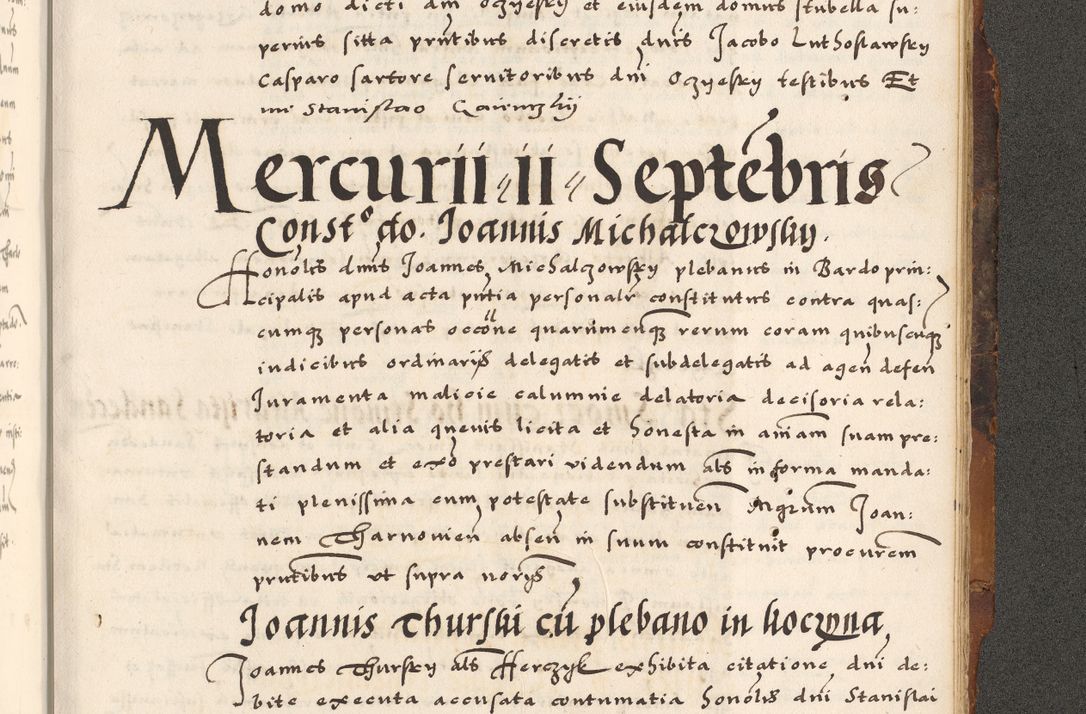 domo dicti dni Oczyesky et eiusdem domus stubella su:
perius sitta prntibus discretis dnis Jacobo Luthoslawsky
Casparo sartore servitoribus dni Oczyesky testibus Et
me Stanislao
Mercurii ii Septebris
Constō do. Joannis Michalczowsky.
Honolis dnus Joannes Michalczowsky plebanus in Bardo prin:
cipalis apud acta pntia personalr constitutus contra quas:
cumq personas occone quarumcunq rerum coram quibuscunq
iudicibus ordinarys delegatis et subdelegatis ad agen defen
Juramenta malicie calumnie delatoria decisoria rela:
toria et alia quevis licita et honesta in aniam suam pre:
standum et exo prestari videndum als in forma manda:
ti plenissima cum potestate substituen Mgrum Joan:
nem Tharnovien absen in suum constituit procurem
prntibus ut supra norys
Joannis Thurski cu plebano in koczyna
Joannes Thursky als Herczyk exhibita citatione dni de:
bite executa accusata contumatia honolis dni Stanislai